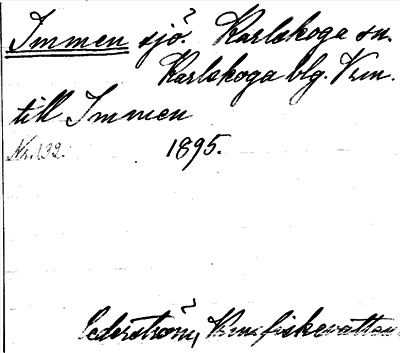 Immen sjö. Karlskoga sn.
Karlskoga blg. Vrm.
till Immen
Nr. 132. 1895.
Cederström, Vrms fiskevatten